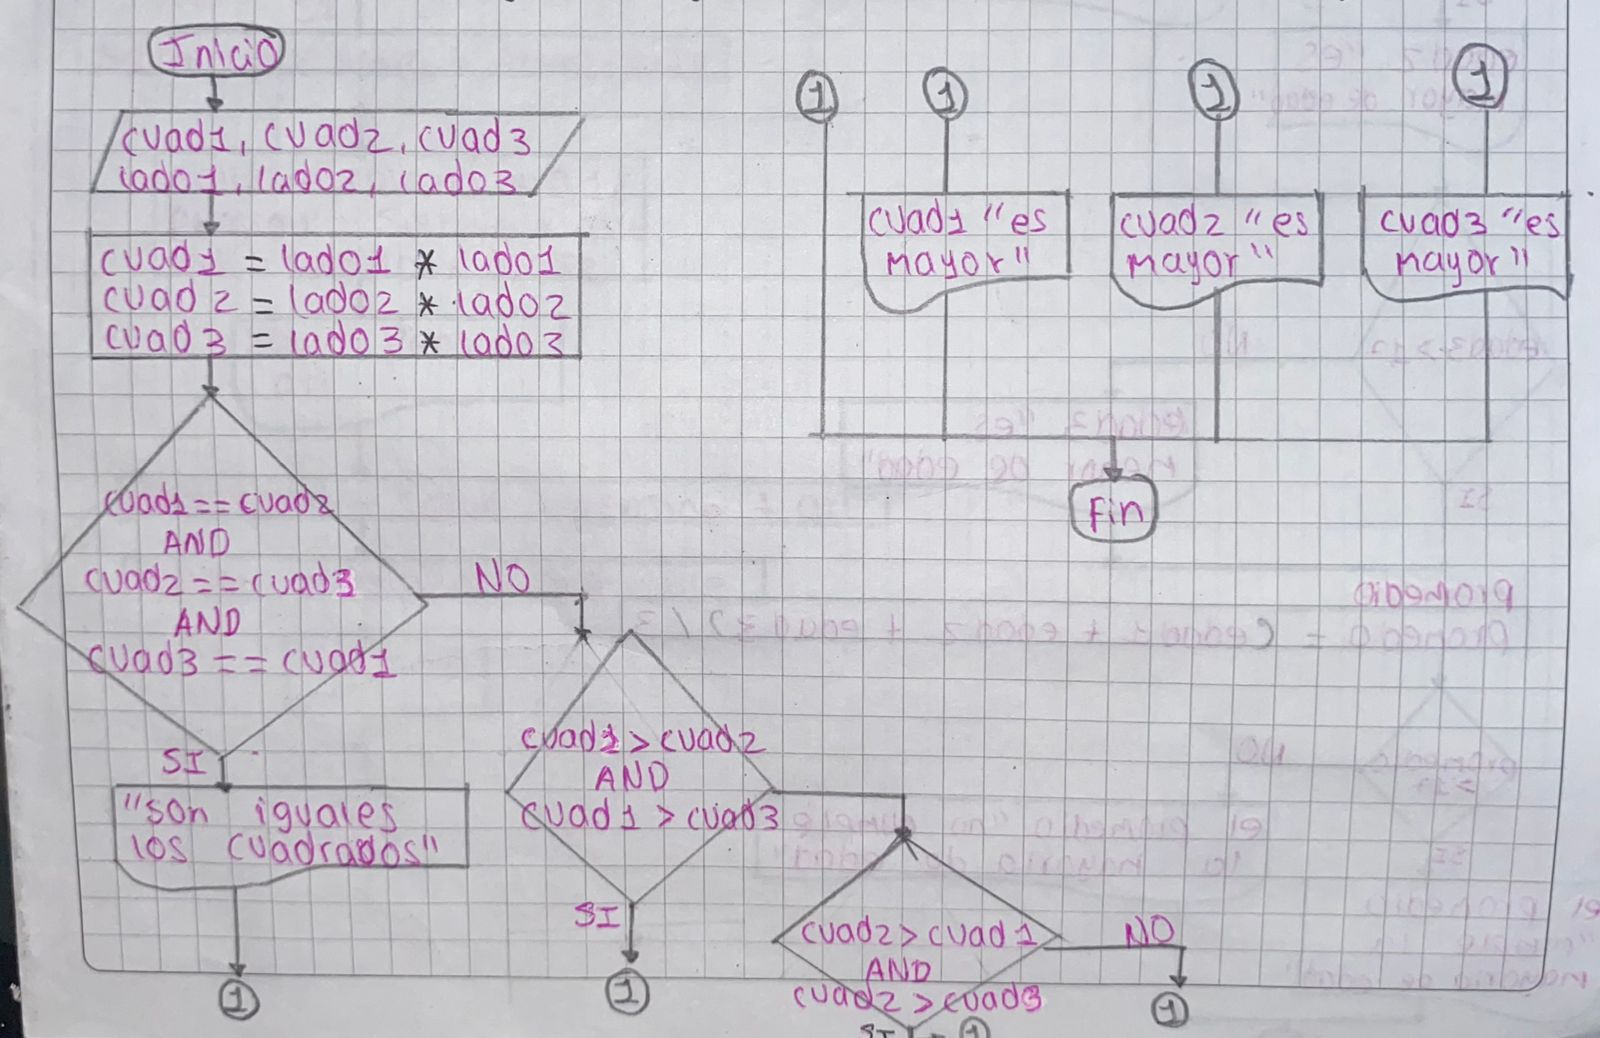 Inicio
cuad1, cuad2, cuad3
lado1, lado2, lado3
cuad1 = lado1 * lado1
cuad2 = lado2 * lado2
cuad3 = lado3 * lado3
cuad1 == cuad2
AND
cuad2 == cuad3
AND
cuad3 == cuad1
NO
SI
"son iguales
los cuadrados"
1
cuad1 > cuad2
AND
cuad1 > cuad3
SI
1
cuad2 > cuad1
AND
cuad2 > cuad3
NO
1
SI
1
1
1
1
1
cuad1 "es
mayor"
cuad2 "es
mayor"
cuad3 "es
mayor"
Fin